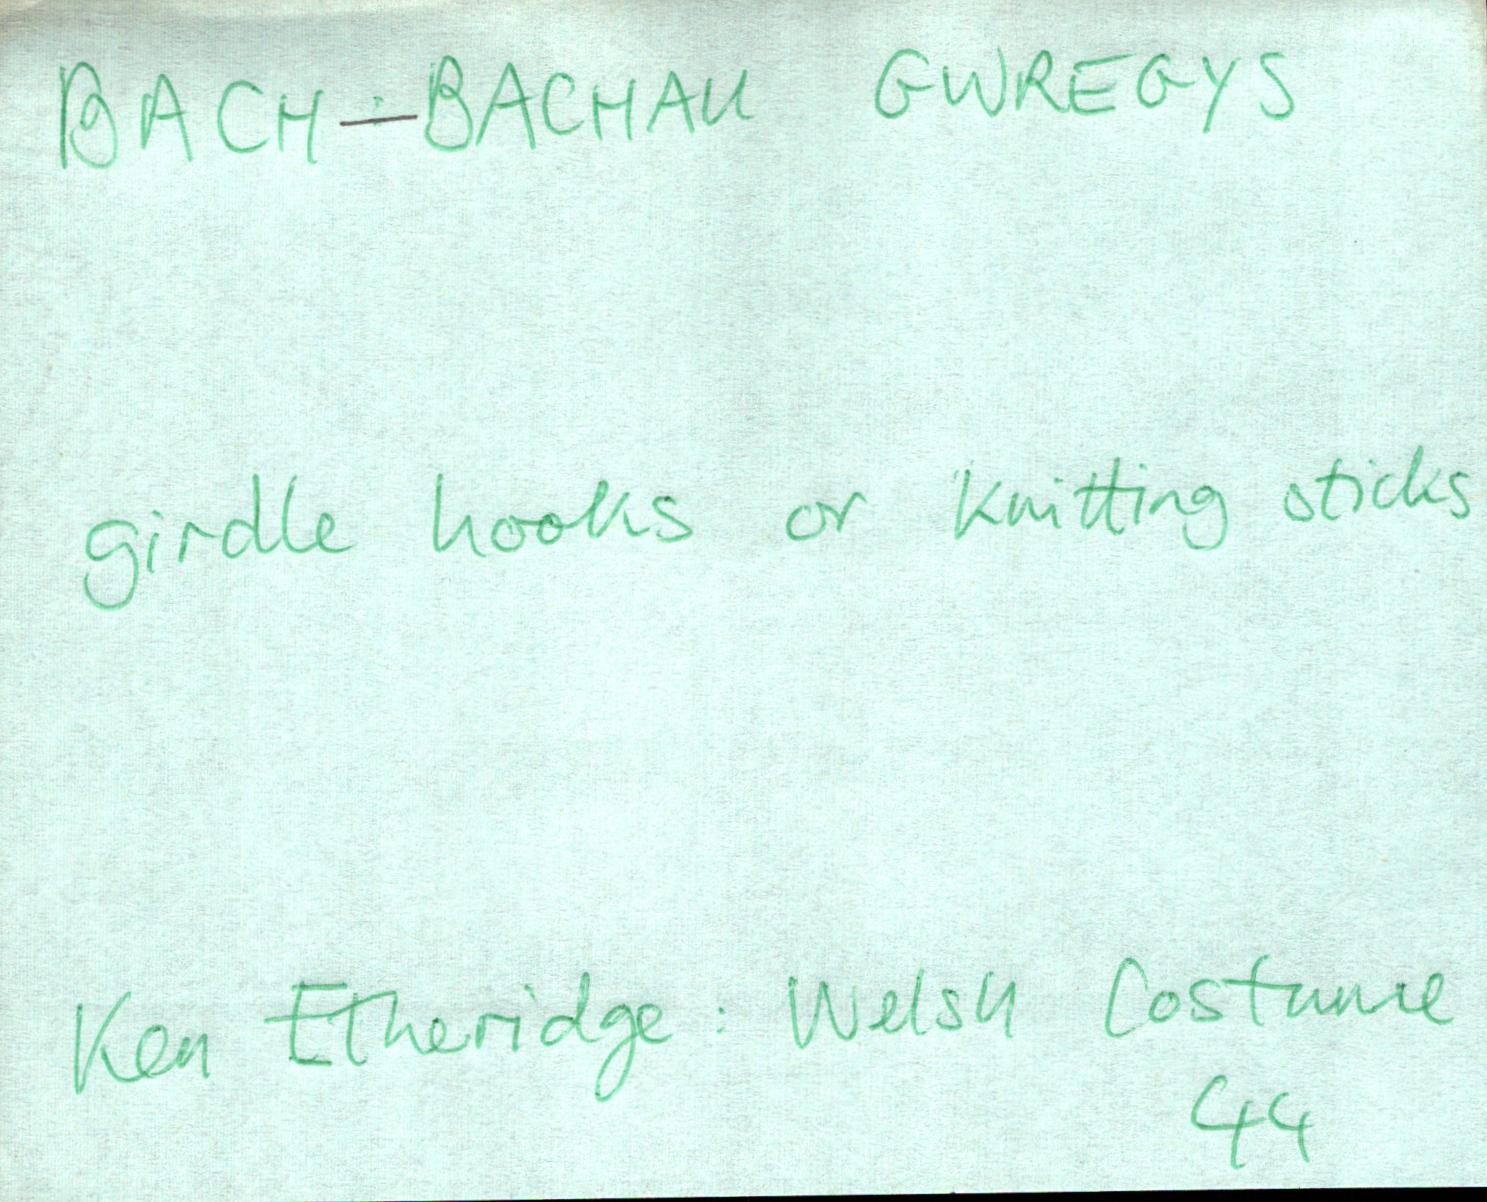 BACH-BACHAU GWREGYS
girdle hooks or knitting sticks
Ken Etheridge: Welsh Costume
44